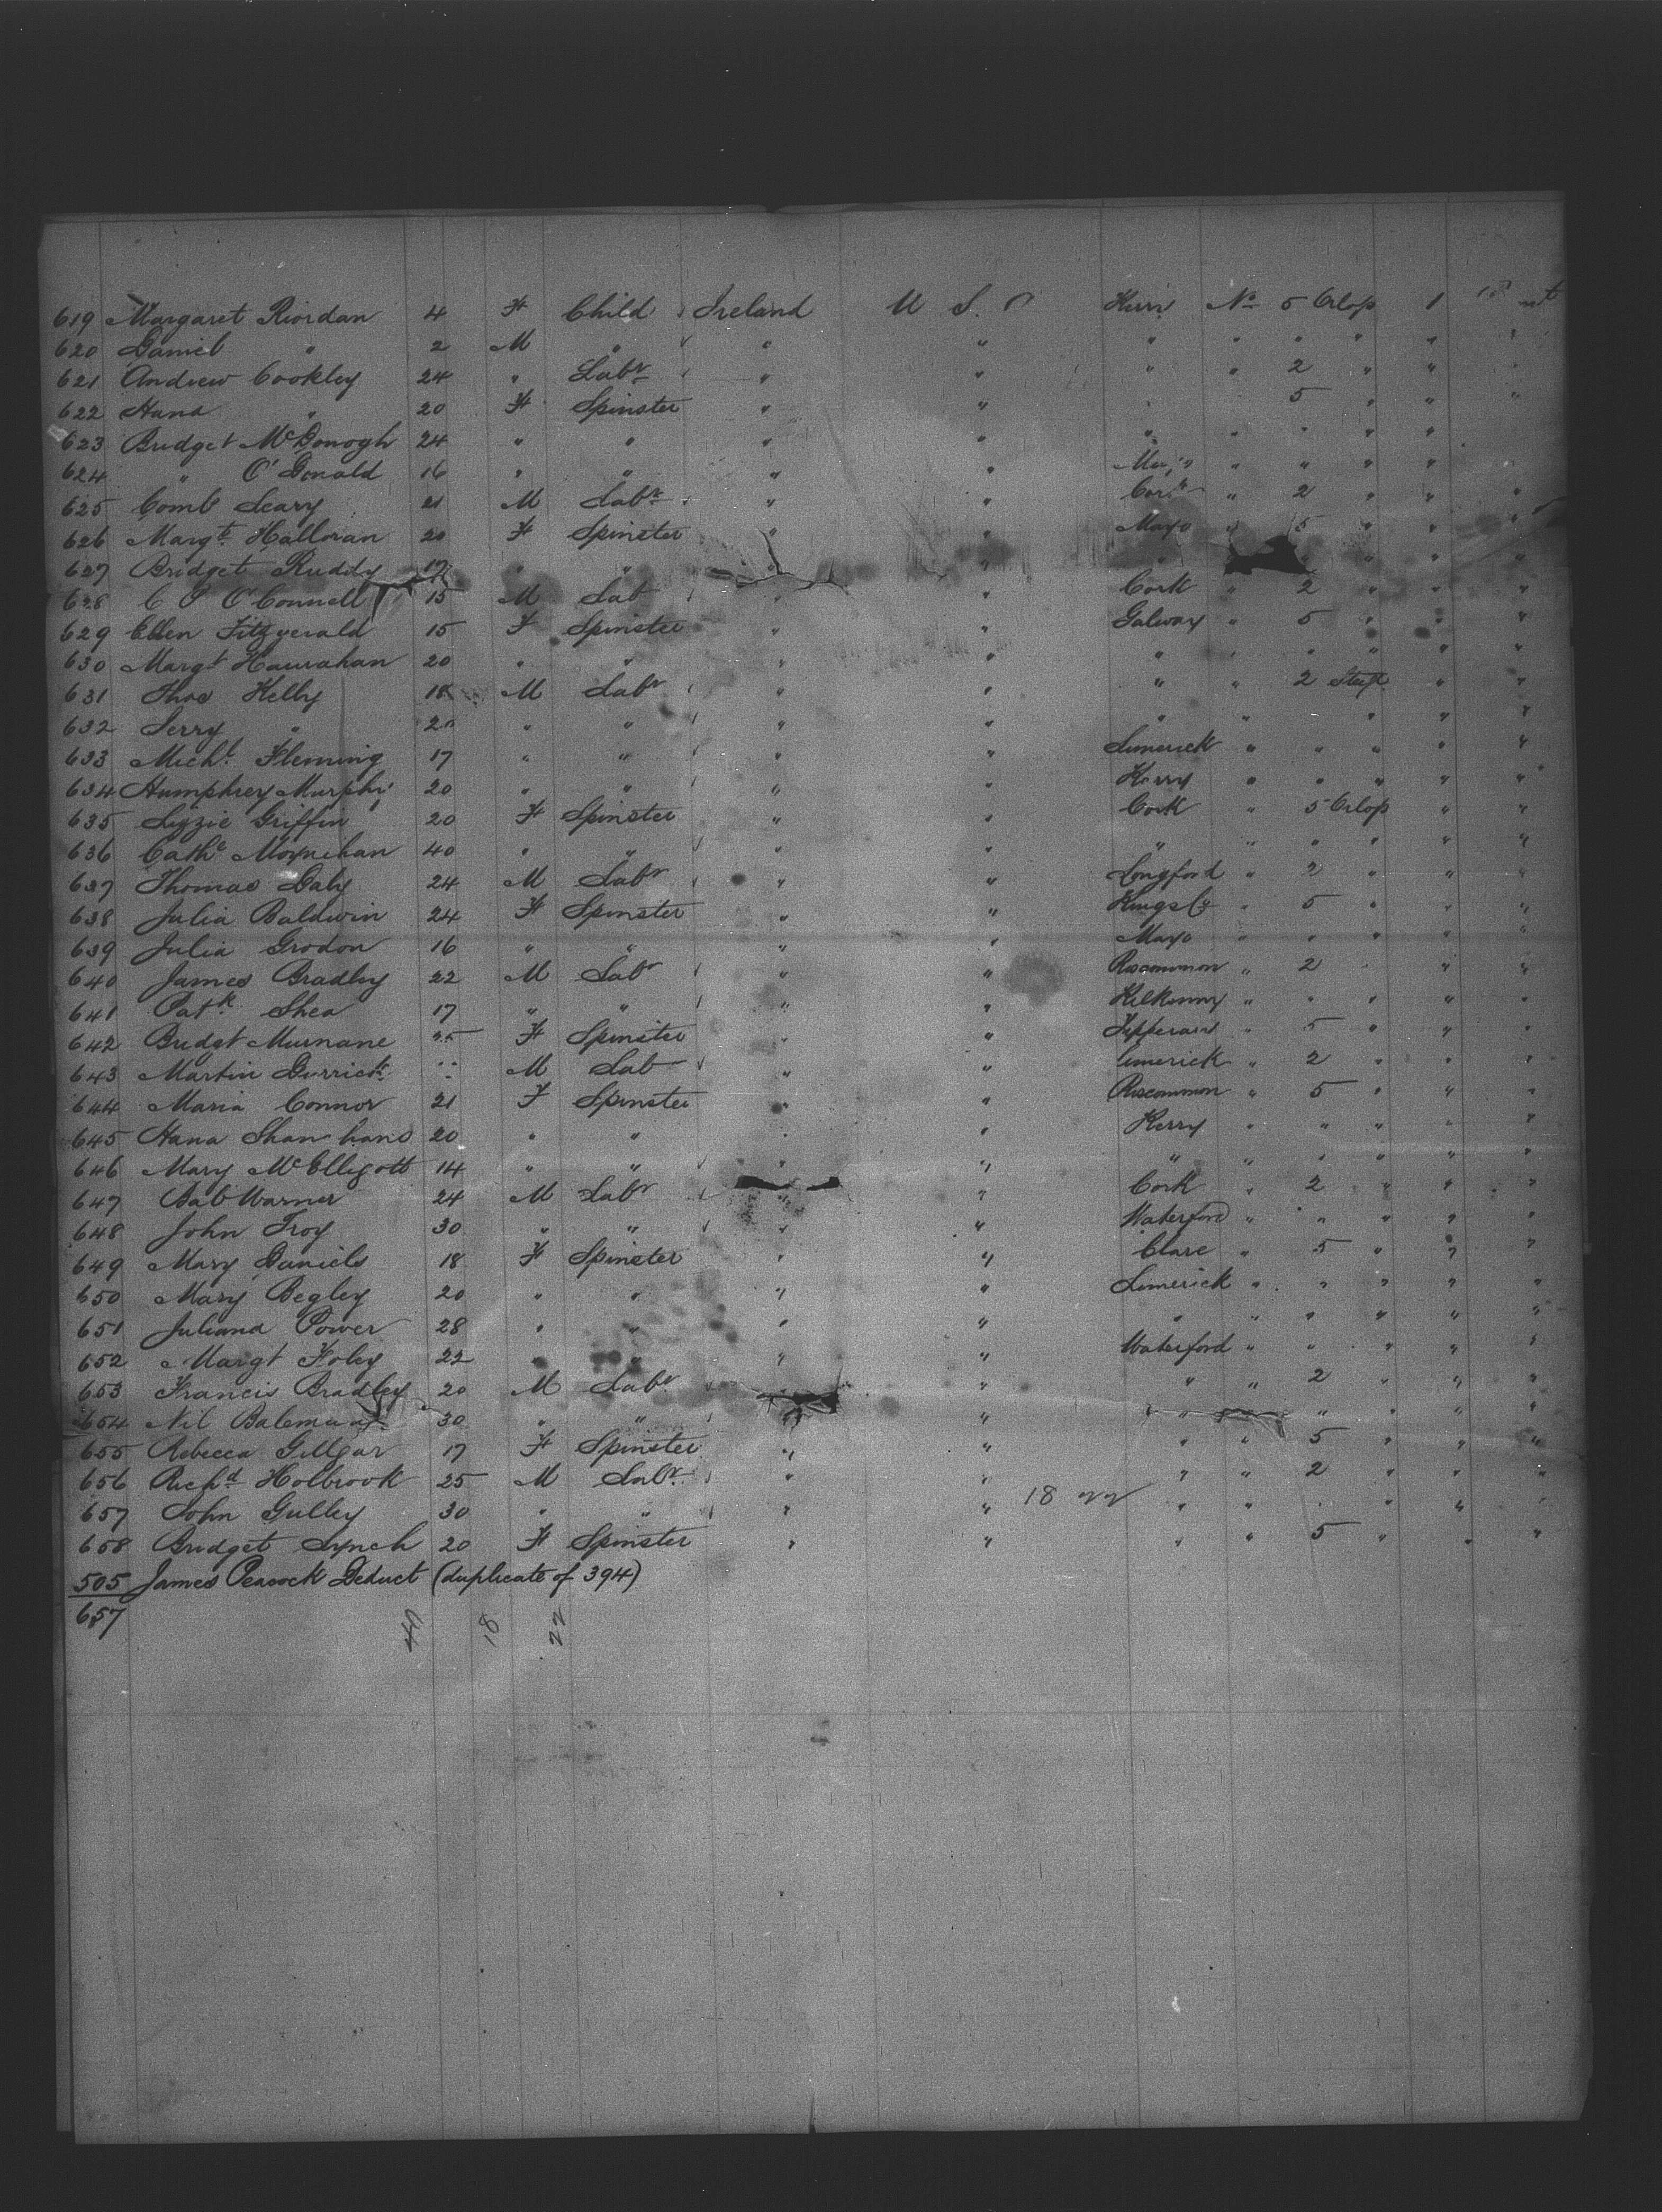 619 Margaret Riordan 4 F Child Ireland U S No 5 Orlop 1
620 Daniel " 2 M " " " " " " " "
621 Andrew Cookley 24 " Labr " " " " 2 " "
622 Hana " 20 F Spinster " " 5 " " "
623 Bridget McDonogh 24 " " " " " " " " "
624 " O'Donald 16 " " " " " " " "
625 Leary 21 M Labr " " Cork " 2 " " "
626 Margt. Halloran 20 F Spinster " " Mayo " 5 " " "
627 Bridget Ruddy 17 " " " " " " " "
628 O'Connell 15 M Lab " " Cork " 2 " " "
629 Ellen Fitzgerald 15 F Spinster " " Galway " 5 " " "
630 Margt Hanrahan 20 " " " " " " " " " "
631 Thos Kelly 18 M Labr " " " " 2 " "
632 " 20 " " " " " " " " "
633 Michl. Fleming 17 " " " " Limerick " " " " "
634 Humphrey Murphy 20 " " " " Kerry " " " " "
635 Lizzie Griffin 20 F Spinster " " Cork " 5 Orlop " "
636 Cathe Moynihan 40 " " " " " " " " " "
637 Thomas Daly 24 M Labr " " Longford " 2 " " "
638 Julia Baldwin 24 F Spinster " " Kings Co " 5 " " "
639 Julia Grodon 16 " " " " Mayo " " " " "
640 James Bradley 22 M Labr " " Roscommon " 2 " " "
641 Patk. Shea 17 " " " " Kilkenny " " " " "
642 Bridgt Murnane 25 F Spinster " " Tipperary " 5 " " "
643 Martin Derrick M Lab " " Limerick " 2 " " "
644 Maria Connor 21 F Spinster " " Roscommon " 5 " " "
645 Hana Shanhans 20 " " " " Kerry " " " " "
646 Mary McElligott 14 " " " " " " " " " "
647 Warner 24 M Labr " " Cork " 2 " " "
648 John Troy 30 " " " " Waterford " " " " "
649 Mary Daniels 18 F Spinster " " Clare " 5 " " "
650 Mary Begley 20 " " " " Limerick " " " " "
651 Juliana Power 28 " " " " " " " " " "
652 Margt Foley 22 " " " " Waterford " " " " "
653 Francis Bradley 20 M Labr " " " " 2 " " "
654 30 " " " " " " " " "
655 Rebecca Gillgar 17 F Spinster " " " " 5 " " "
656 Richd Holbrook 25 M Labr " " " " 2 " " "
657 John Gulley 30 " " " " 18 22 " " " " " "
658 Bridget Lynch 20 F Spinster " " " " 5 " " "
505 James Peacock Deduct (duplicate of 394)
657
18 22